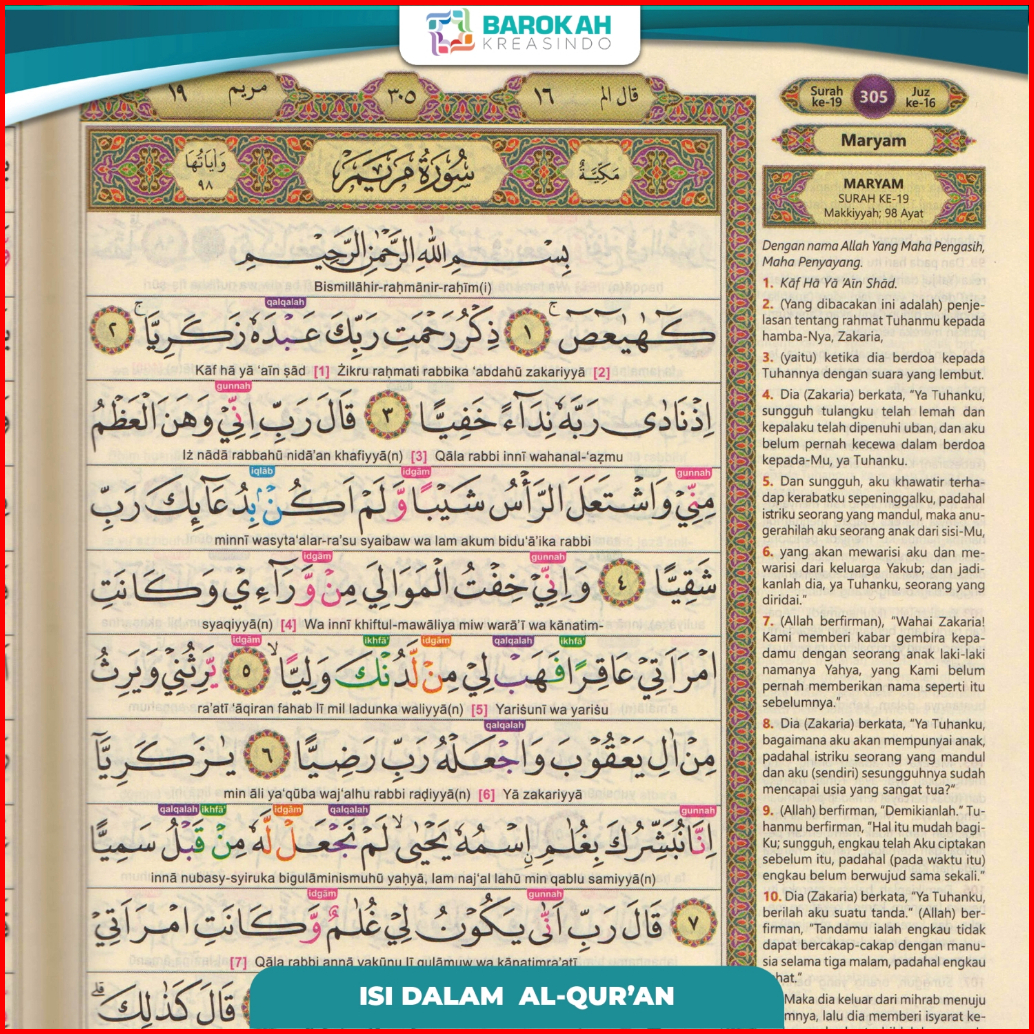 BAROKAH
KREASINDO
مريم ١٩
٣٠٥
قال الم ١٦
سُورَةُ مَرْيَمَ
مَكِّيَّةٌ
وَاٰيَاتُهَا
٩٨
بِسْمِ اللّٰهِ الرَّحْمٰنِ الرَّحِيْمِ
Bismillāhir-raḥmānir-raḥīm(i)
qalqalah
كۤهٰيٰعۤصۤ ۚ ١ ذِكْرُ رَحْمَتِ رَبِّكَ عَبْدَهٗ زَكَرِيَّا ۚ ٢
Kāf hā yā ‘aīn ṣād [1] Żikru raḥmati rabbika ‘abdahū zakariyyā [2]
gunnah
اِذْ نَادٰى رَبَّهٗ نِدَاۤءً خَفِيًّا ٣ قَالَ رَبِّ اِنِّيْ وَهَنَ الْعَظْمُ
Iż nādā rabbahū nidā’an khafiyyā(n) [3] Qāla rabbi innī wahanal-‘aẓmu
iqlāb idgām gunnah
مِنِّيْ وَاشْتَعَلَ الرَّأْسُ شَيْبًا وَّلَمْ اَكُنْۢ بِدُعَاۤىِٕكَ رَبِّ
minnī wasyta‘alar-ra’su syaibaw wa lam akum bidu‘ā’ika rabbi
idgām gunnah
شَقِيًّا ٤ وَاِنِّيْ خِفْتُ الْمَوَالِيَ مِنْ وَّرَاۤءِيْ وَكَانَتِ
syaqiyyā(n) [4] Wa innī khiftul-mawāliya miw warā’ī wa kānatim-
idgām ikhfā’ idgām qalqalah ikhfā’
امْرَاَتِيْ عَاقِرًا فَهَبْ لِيْ مِنْ لَّدُنْكَ وَلِيًّا ۙ ٥ يَّرِثُنِيْ وَيَرِثُ
ra’atī ‘āqiran fahab lī mil ladunka waliyyā(n) [5] Yariṡunī wa yariṡu
qalqalah
مِنْ اٰلِ يَعْقُوْبَ وَاجْعَلْهُ رَبِّ رَضِيًّا ٦ يٰزَكَرِيَّآ
min āli ya‘qūba waj‘alhu rabbi raḍiyyā(n) [6] Yā zakariyyā
qalqalah ikhfā’ idgām qalqalah gunnah
اِنَّا نُبَشِّرُكَ بِغُلٰمِ ࣙاسْمُهٗ يَحْيٰىۙ لَمْ نَجْعَلْ لَّهٗ مِنْ قَبْلُ سَمِيًّا
innā nubasy-syiruka bigulāminismuhū yaḥyā, lam naj‘al lahū min qablu samiyyā(n)
idgām gunnah
٧ قَالَ رَبِّ اَنّٰى يَكُوْنُ لِيْ غُلٰمٌ وَّكَانَتِ امْرَاَتِيْ
[7] Qāla rabbi annā yakūnu lī gulāmuw wa kānatimra’atī
قَالَ كَذٰلِكَ
Surah
ke-19
305
Juz
ke-16
Maryam
MARYAM
SURAH KE-19
Makkiyyah; 98 Ayat
Dengan nama Allah Yang Maha Pengasih,
Maha Penyayang.
1. Kāf Hā Yā ‘Aīn Shād.
2. (Yang dibacakan ini adalah) penje-
lasan tentang rahmat Tuhanmu kepada
hamba-Nya, Zakaria,
3. (yaitu) ketika dia berdoa kepada
Tuhannya dengan suara yang lembut.
4. Dia (Zakaria) berkata, “Ya Tuhanku,
sungguh tulangku telah lemah dan
kepalaku telah dipenuhi uban, dan aku
belum pernah kecewa dalam berdoa
kepada-Mu, ya Tuhanku.
5. Dan sungguh, aku khawatir terha-
dap kerabatku sepeninggalku, padahal
istriku seorang yang mandul, maka anu-
gerahilah aku seorang anak dari sisi-Mu,
6. yang akan mewarisi aku dan me-
warisi dari keluarga Yakub; dan jadi-
kanlah dia, ya Tuhanku, seorang yang
diridai.”
7. (Allah berfirman), “Wahai Zakaria!
Kami memberi kabar gembira kepa-
damu dengan seorang anak laki-laki
namanya Yahya, yang Kami belum
pernah memberikan nama seperti itu
sebelumnya.”
8. Dia (Zakaria) berkata, “Ya Tuhanku,
bagaimana aku akan mempunyai anak,
padahal istriku seorang yang mandul
dan aku (sendiri) sesungguhnya sudah
mencapai usia yang sangat tua?”
9. (Allah) berfirman, “Demikianlah.” Tu-
hanmu berfirman, “Hal itu mudah bagi-
Ku; sungguh, engkau telah Aku ciptakan
sebelum itu, padahal (pada waktu itu)
engkau belum berwujud sama sekali.”
10. Dia (Zakaria) berkata, “Ya Tuhanku,
berilah aku suatu tanda.” (Allah) ber-
firman, “Tandamu ialah engkau tidak
dapat bercakap-cakap dengan manu-
sia selama tiga malam, padahal engkau
hat.”
Maka dia keluar dari mihrab menuju
mnya, lalu dia memberi isyarat ke-
ISI DALAM AL-QUR’AN